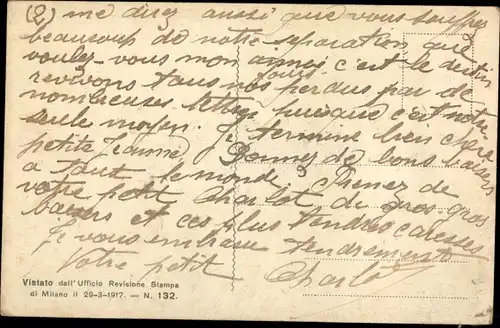 (2) me disez aussi que vous souffrez
beaucoup de notre separation, que
voulez-vous mon amie c'est le destin
revivons tous nos jours perdus par de
nombreuses lettres puisque c'est notre
seule moyen. Je termine bien chère
petite Jeanne, Donnez de bons baisers
a tout le monde, Prenez de
votre petit Charlot de gros gros
baisers et ces plus tendres caresses
Je vous embrasse tendrement
Votre petit Charlot
Vistato dall'Ufficio Revisione Stampa
di Milano il 29-3-1917. - N. 132.